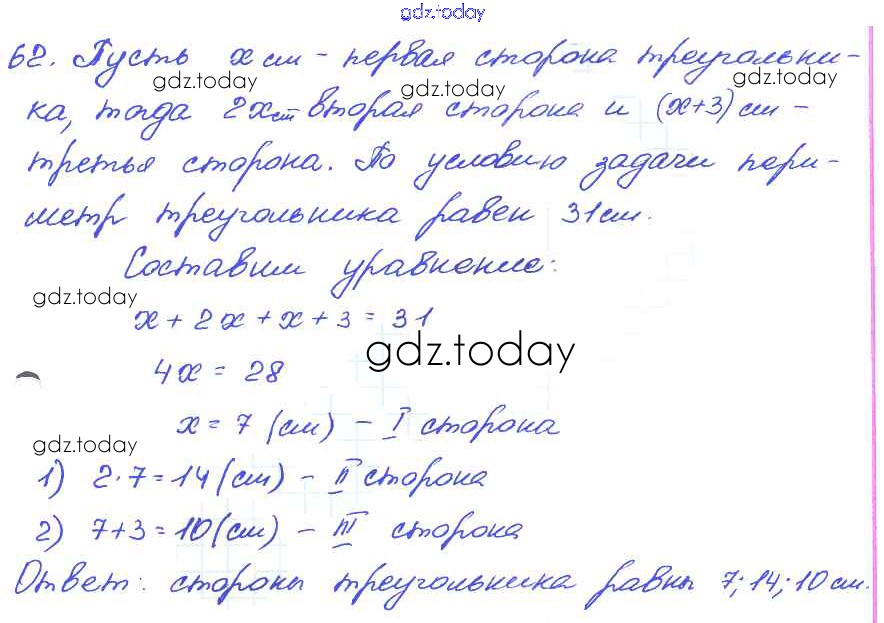 gdz.today
62. Пусть x см - первая сторона треугольни-
gdz.today gdz.today gdz.today
ка, тогда 2x см вторая сторона и (x+3) см -
третья сторона. По условию задачи пери-
метр треугольника равен 31 см.
Составим уравнение:
gdz.today
x + 2x + x + 3 = 31
gdz.today
4x = 28
x = 7 (см) - I сторона
gdz.today
1) 2·7=14 (см) - II сторона
2) 7+3=10 (см) - III сторона
Ответ: стороны треугольника равны 7; 14; 10 см.